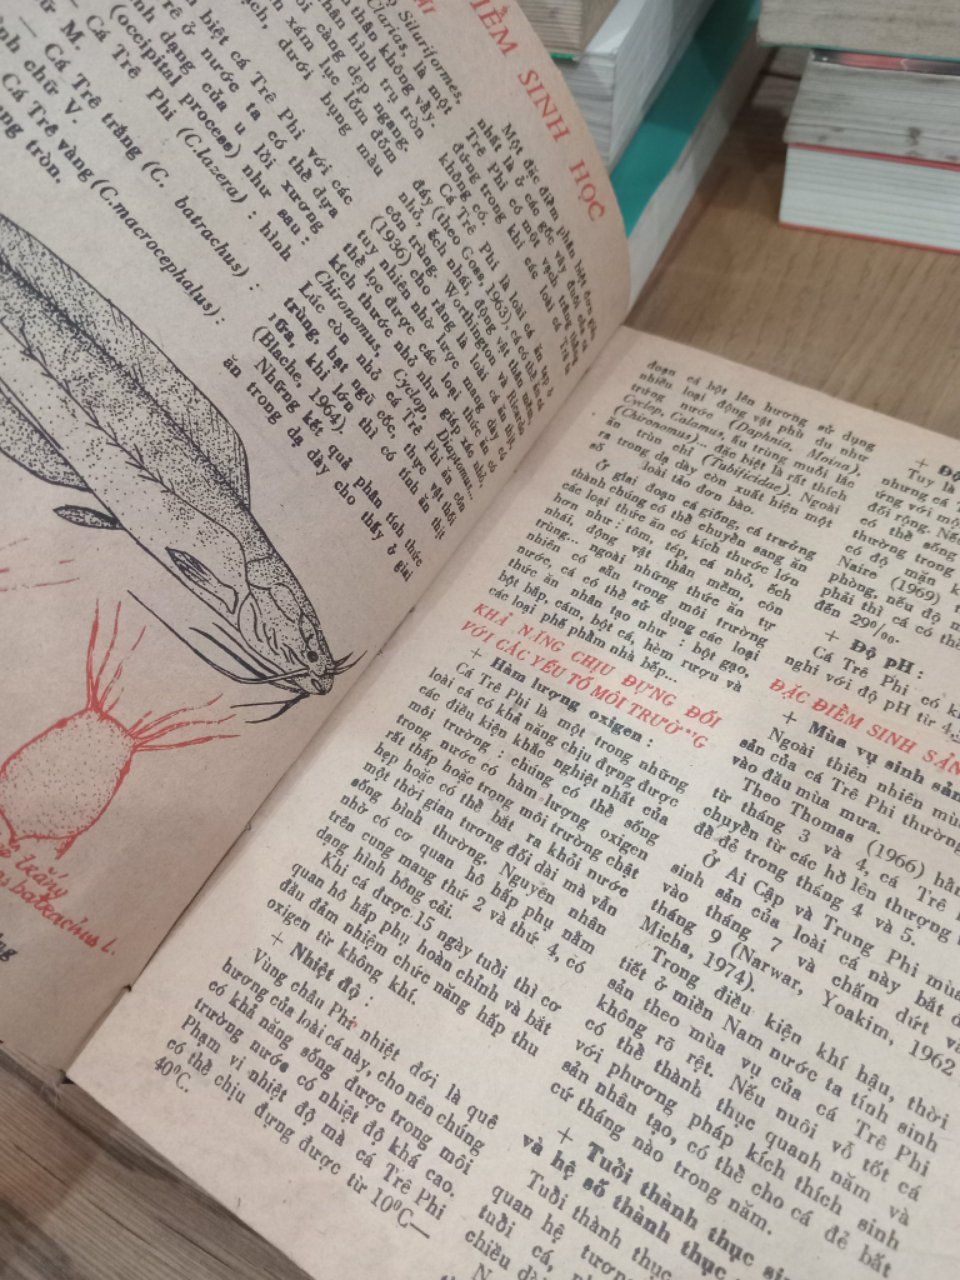 IỂM SINH HỌC
Siluriformes,
Clarias, là một
thân không vẩy.
thân hình trụ tròn
càng dẹp ngang.
xám lục lốm đốm
dưới bụng màu
biệt cá Trê Phi với các
Trê ở nước ta có thể dựa
hình dạng của u lồi xương
(occipital process) như sau :
— Cá Trê Phi (C.lazera) : hình
chữ M.
— Cá Trê trắng (C. batrachus) :
hình chữ V.
Cá Trê vàng (C.macrocephalus) :
tròn.
Một đặc điểm phân biệt đơn giản
nhất là ở các gốc vây đuôi của cá
Trê Phi có một vạch trắng thẳng
đứng trong khi các loài cá Trê ta
không có.
Cá Trê Phi là loài cá ăn tạp ở
đáy (theo Goss, 1963)
nhỏ, ếch nhái, động vật thân mềm,
côn trùng. Worthington và Ricardo
(1936) cho rằng là loài cá ăn thịt,
tuy nhiên nhờ lược mang dày có
thể lọc được các loại thức ăn có
kích thước nhỏ như giáp xác nhỏ,
Chironomus, Cyclop, Diaptomus...
Lúc còn nhỏ cá Trê Phi ăn côn
trùng, hạt ngũ cốc, thực vật thối
rữa, khi lớn thì có tính ăn thịt
(Blache, 1964).
Những kết quả phân tích thức
ăn trong dạ dày cho thấy ở giai
batrachus L.
đoạn cá bột lên hương sử dụng
nhiều loại động vật phù du như
trứng nước (Daphnia, Moina),
Cyclop, Calamus, ấu trùng muỗi lắc
(Chironomus)... đặc biệt là rất thích
ăn trùn chỉ (Tubificidae). Ngoài
ra trong dạ dày còn xuất hiện một
số loài tảo đơn bào.
Ở giai đoạn cá giống, cá trưởng
thành chúng có thể chuyển sang ăn
các loại thức ăn có kích thước lớn
hơn như : tôm, tép, cá nhỏ, ếch
nhái, động vật thân mềm, côn
trùng... ngoài những thức ăn tự
nhiên có sẵn trong môi trường
nước, cá có thể sử dụng các loại
thức ăn nhân tạo như : bột gạo,
bột bắp, cám, bột cá, hèm rượu và
các loại phế phẩm nhà bếp...
KHẢ NĂNG CHỊU ĐỰNG ĐỐI
VỚI CÁC YẾU TỐ MÔI TRƯỜNG
+ Hàm lượng oxigen :
Cá Trê Phi là một trong những
loài cá có khả năng chịu đựng được
các điều kiện khắc nghiệt nhất của
môi trường : chúng có thể sống
trong nước có hàm lượng oxigen
rất thấp hoặc trong môi trường chật
hẹp hoặc có thể bắt ra khỏi nước
một thời gian tương đối dài mà vẫn
sống bình thường. Nguyên nhân
nhờ có cơ quan hô hấp phụ nằm
trên cung mang thứ 2 và thứ 4, có
dạng hình bông cải.
Khi cá được 15 ngày tuổi thì cơ
quan hô hấp phụ hoàn chỉnh và bắt
đầu đảm nhiệm chức năng hấp thu
oxigen từ không khí.
+ Nhiệt độ :
Vùng châu Phi nhiệt đới là quê
hương của loài cá này, cho nên chúng
có khả năng sống được trong môi
trường nước có nhiệt độ khá cao.
Phạm vi nhiệt độ mà cá Trê Phi
có thể chịu đựng được từ 10⁰C—
40⁰C.
+ Độ
Tuy là
nhưng cá T
ứng với mộ
đổi rộng.
có thể sống
thường trong
có độ mặn k
Naire (1969) t
phòng, nếu độ m
phải thì cá có thể
đến 29⁰/₀₀.
+ Độ pH :
Cá Trê Phi có k
nghi với độ pH từ 4,
ĐẶC ĐIỂM SINH SẢN
+ Mùa vụ sinh sản
Ngoài thiên nhiên mùa
sản của cá Trê Phi thường
vào đầu mùa mưa.
Theo Thomas (1966) hằn
từ tháng 3 và 4, cá Trê
chuyển từ các hồ lên thượng
để đẻ trong tháng 4 và 5.
Ở Ai Cập và Trung Phi mùa
sinh sản của loài cá này bắt đ
vào tháng 7 và chấm dứt và
tháng 9 (Narwar, Yoakim, 1962
Micha, 1974).
Trong điều kiện khí hậu, thời
tiết ở miền Nam nước ta tính sinh
sản theo mùa vụ của cá Trê Phi
không rõ rệt. Nếu nuôi vỗ tốt cá
có thể thành thục quanh năm và
với phương pháp kích thích sinh
sản nhân tạo, có thể cho cá đẻ bất
cứ tháng nào trong năm.
+ Tuổi thành thục si
và hệ số thành thục
Tuổi thành thục
quan hệ tương
tuổi cá,
chiều dài